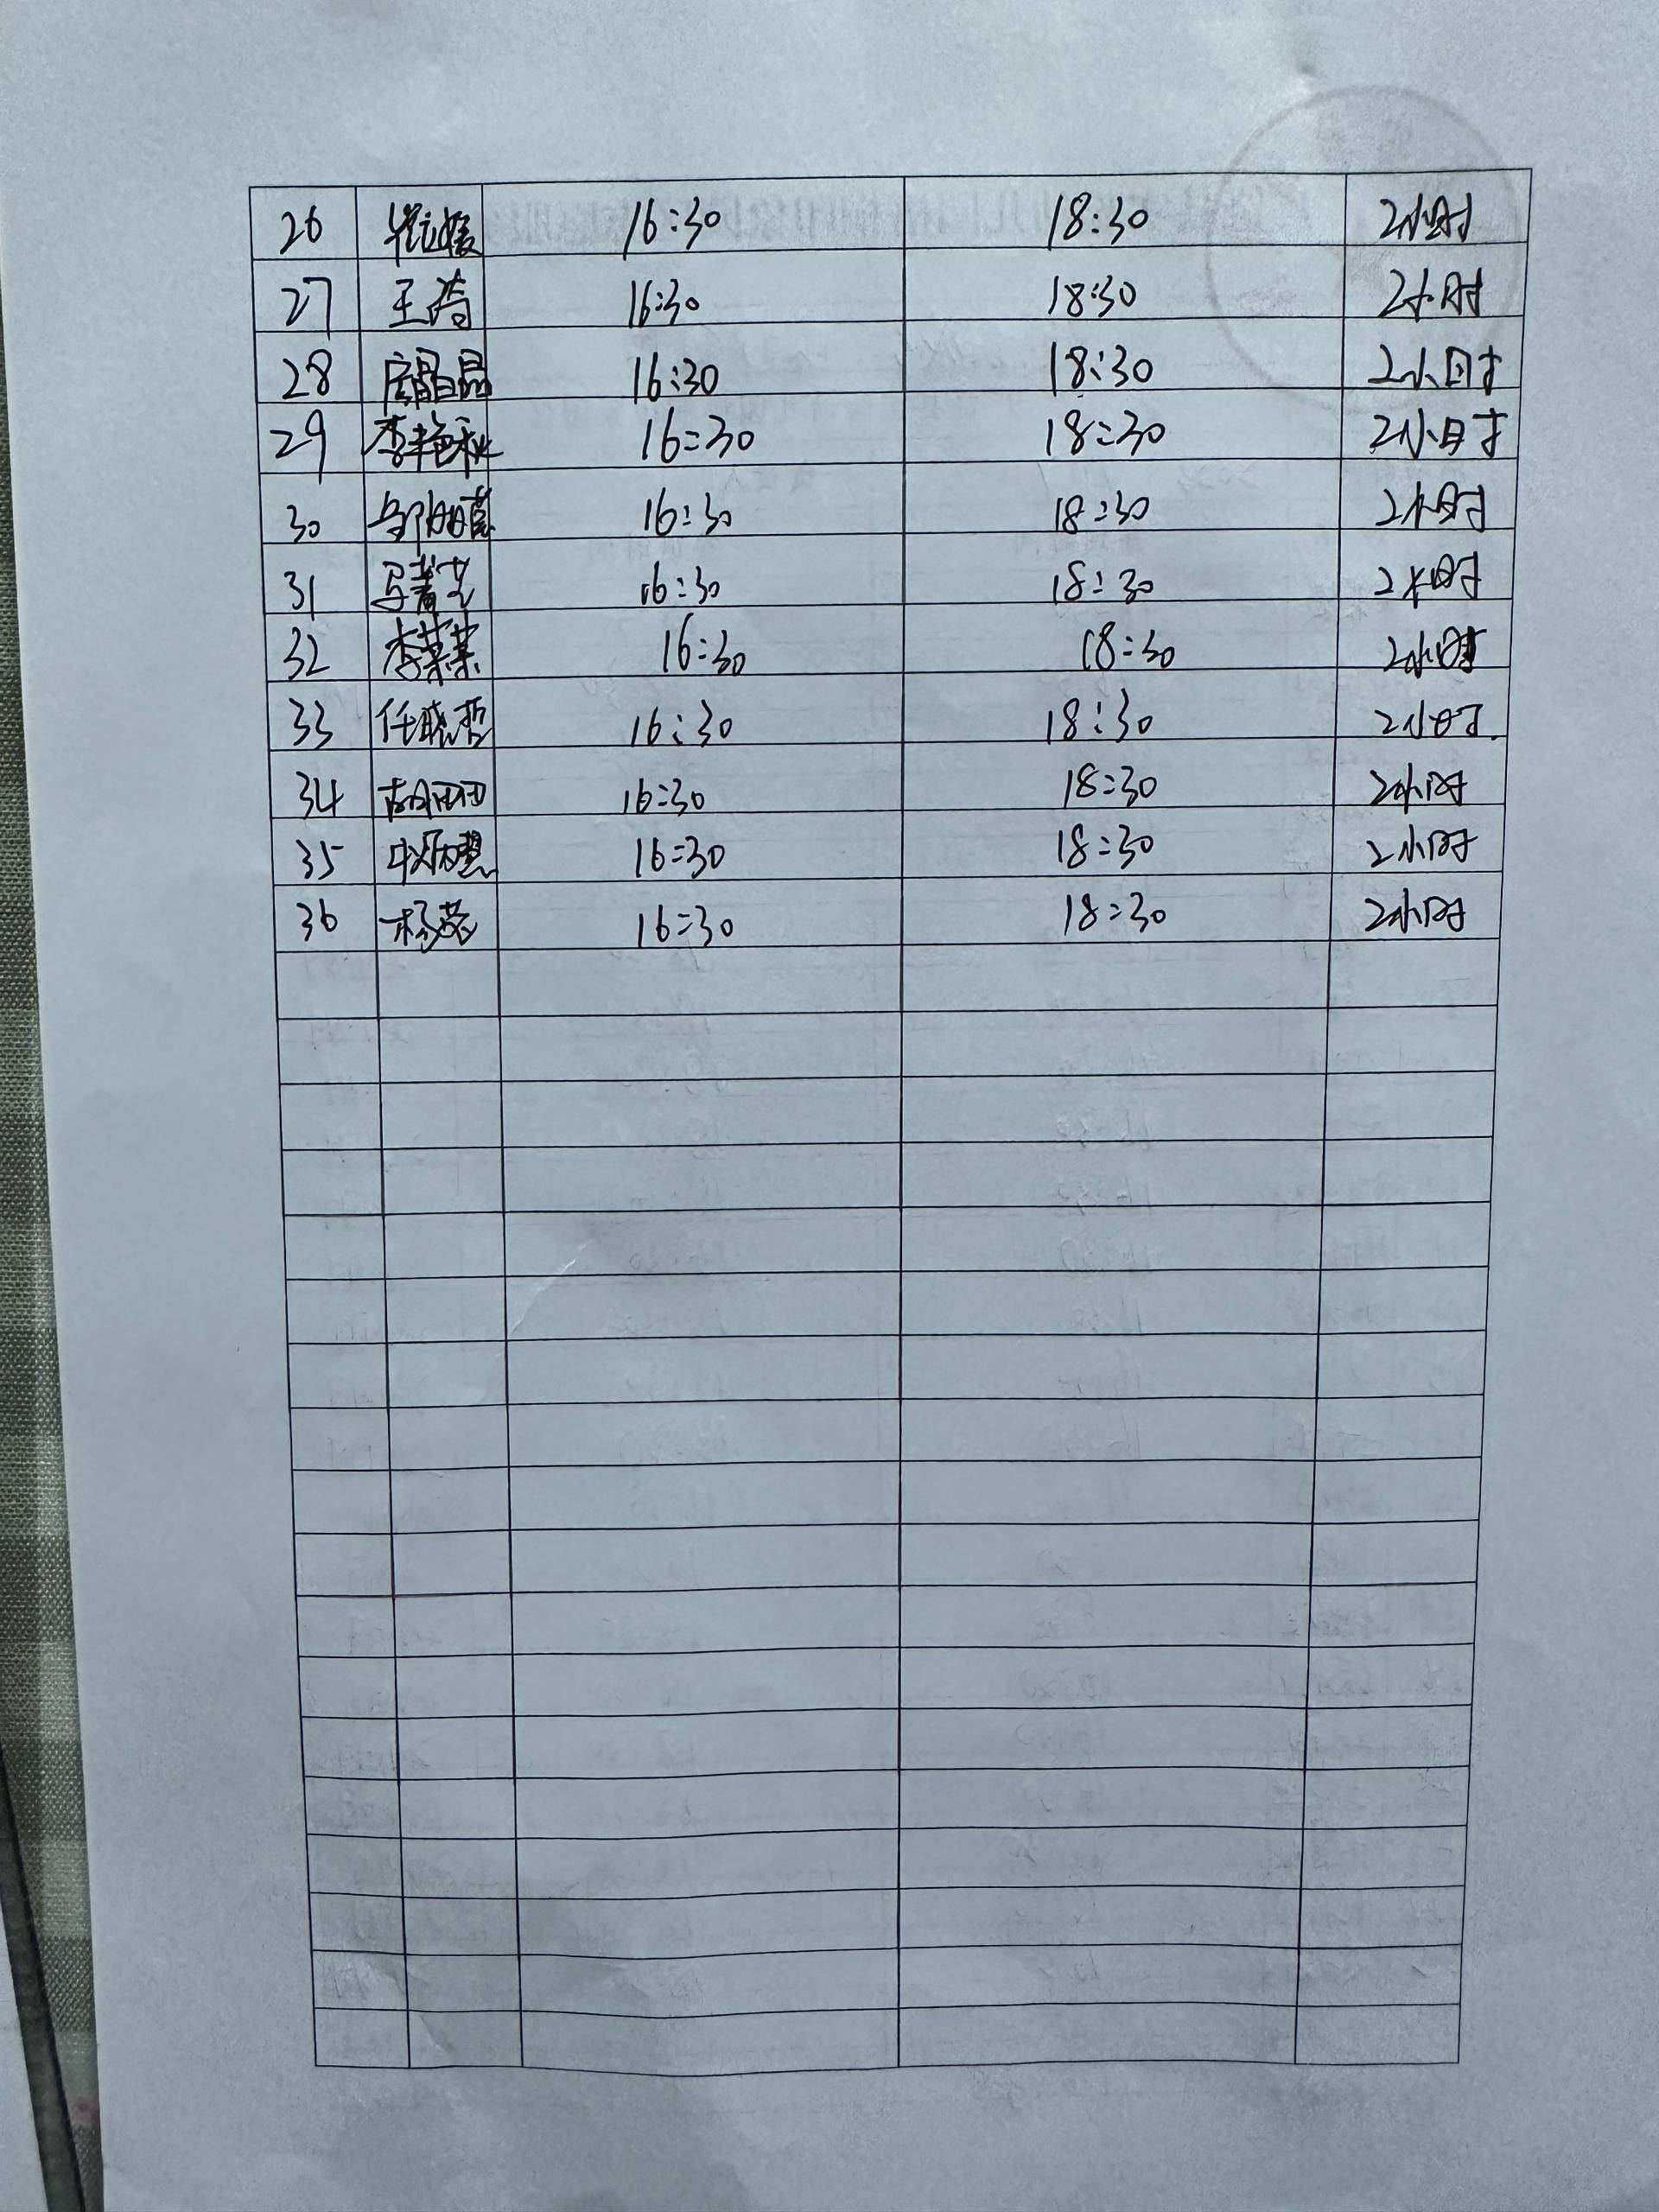 26 16:30 18:30 2小时
27 王 16:30 18:30 2小时
28 晶晶 16:30 18:30 2小时
29 李艳秋 16:30 18:30 2小时
30 16:30 18:30 2小时
31 16:30 18:30 2小时
32 李荣荣 16:30 18:30 2小时
33 任晓哲 16:30 18:30 2小时
34 胡田田 16:30 18:30 2小时
35 16:30 18:30 2小时
36 杨蕊 16:30 18:30 2小时